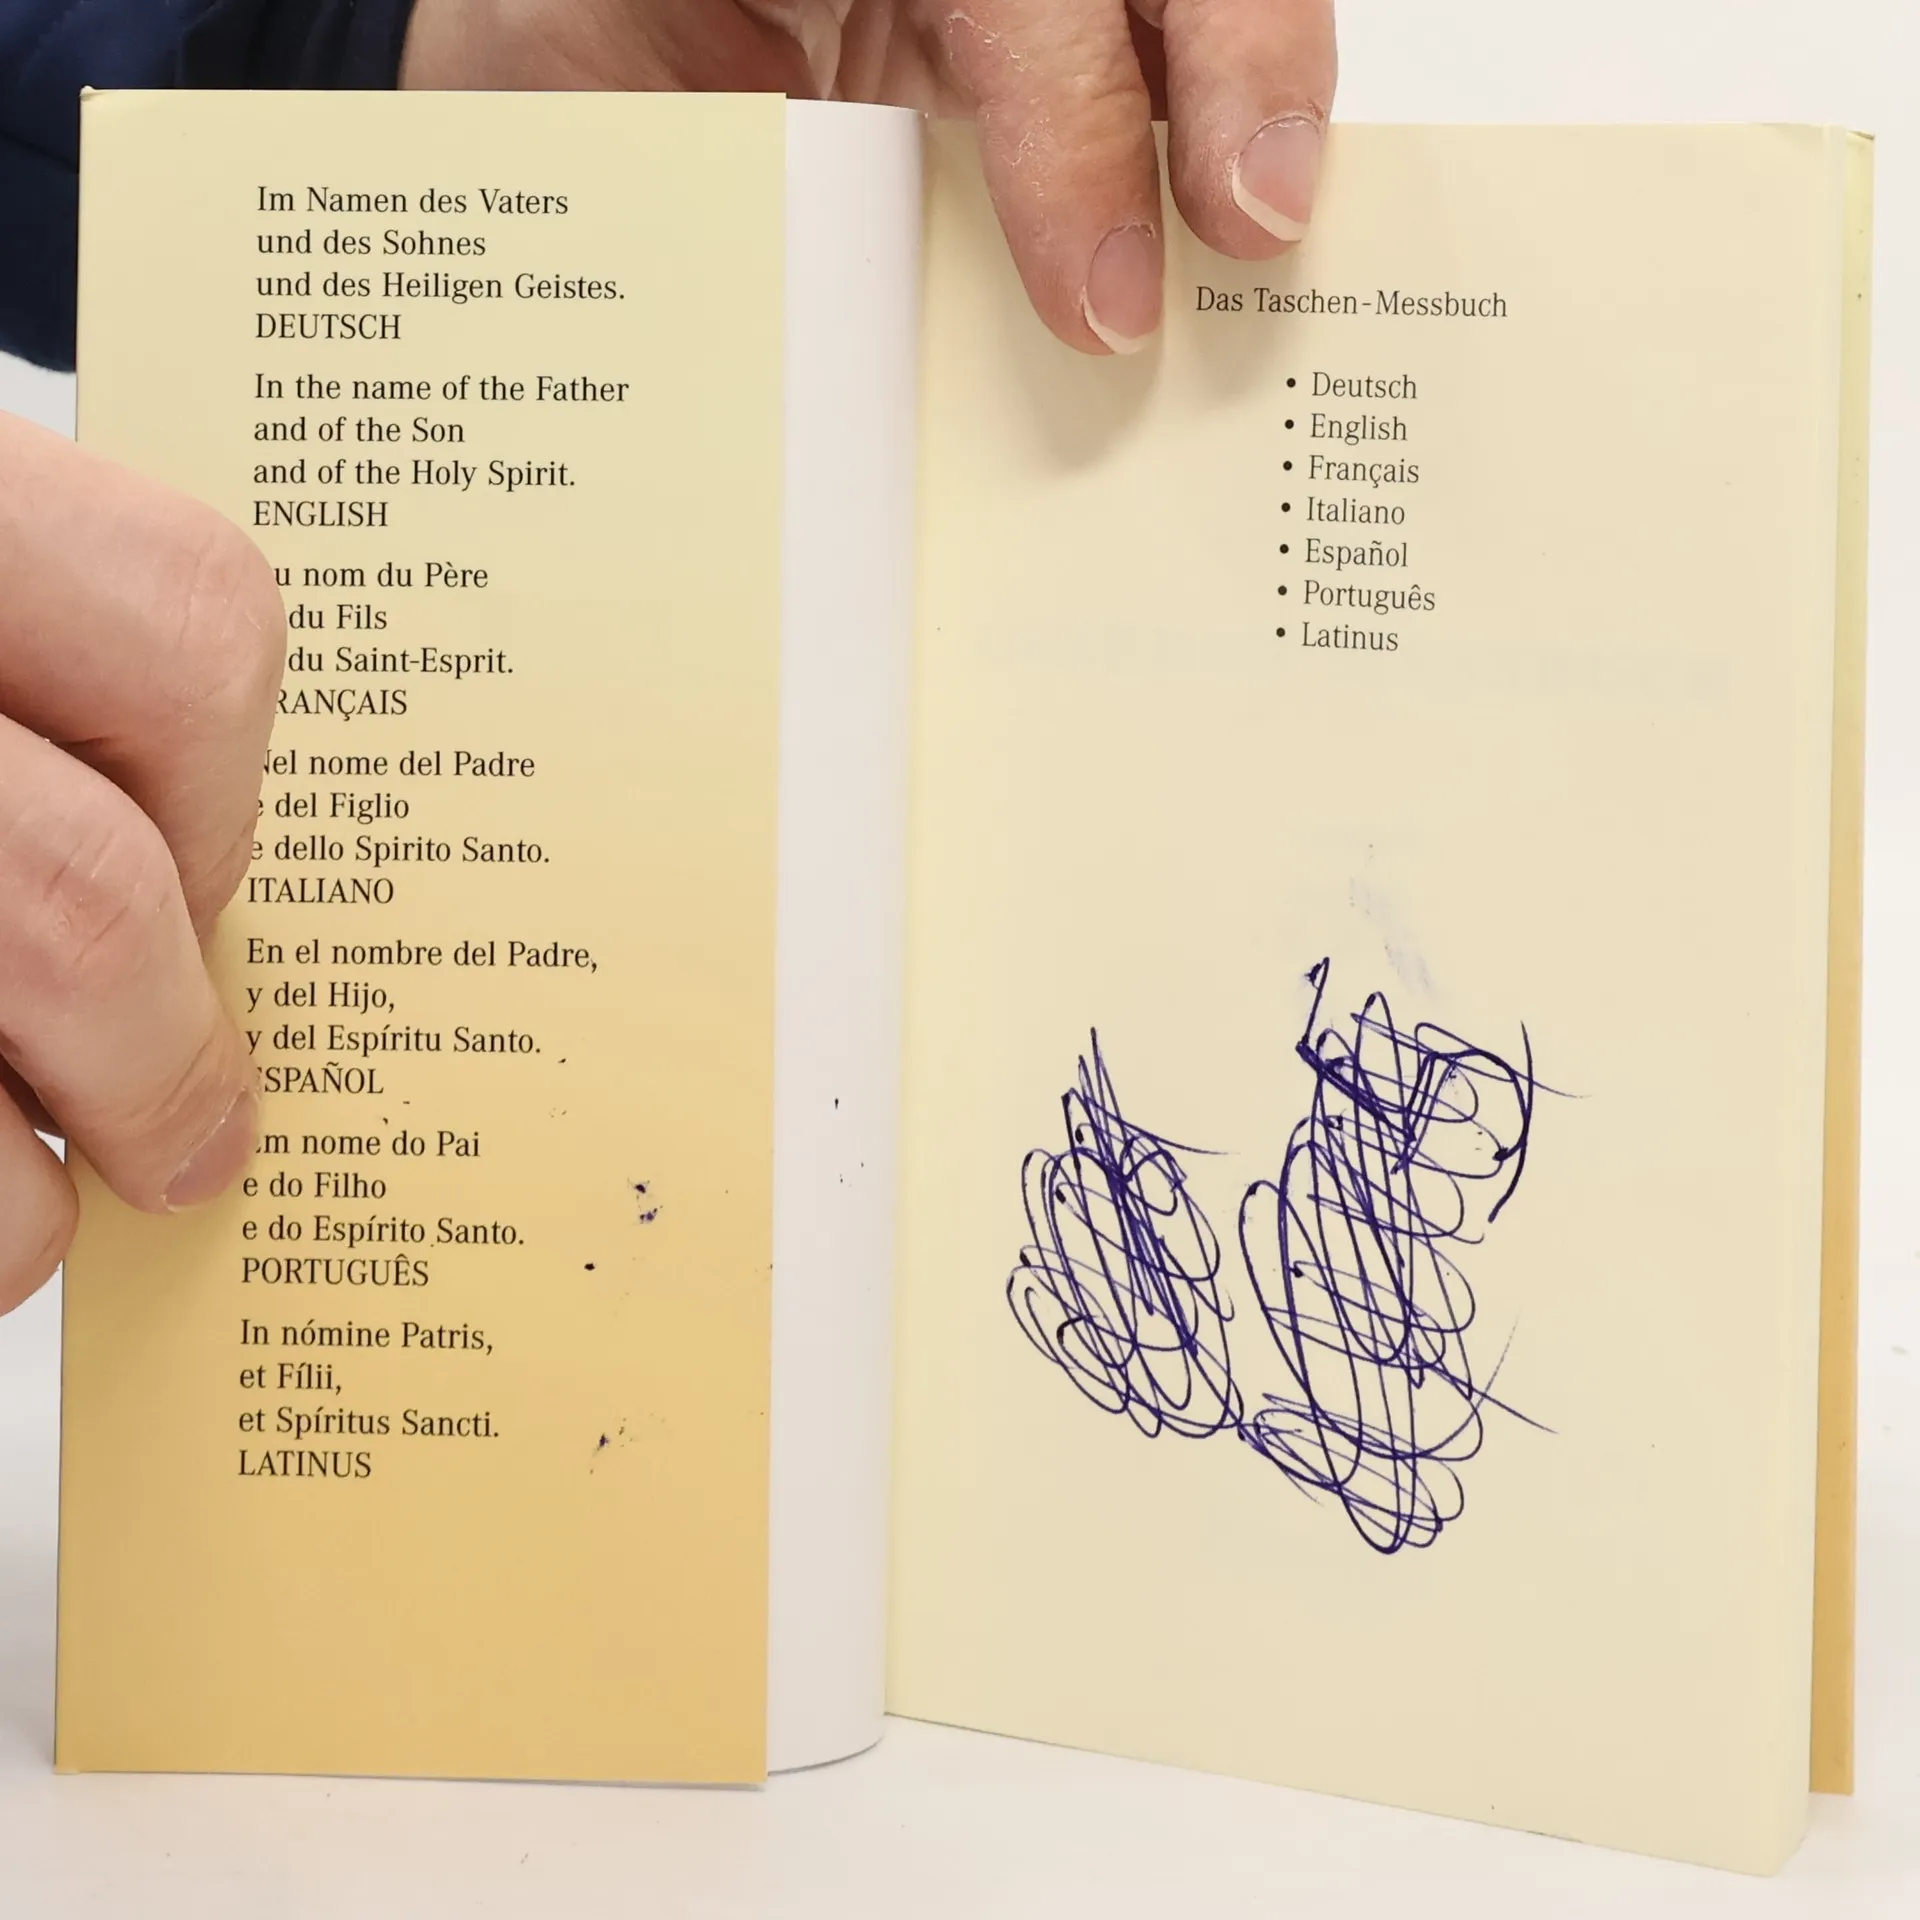 Im Namen des Vaters
und des Sohnes
und des Heiligen Geistes.
DEUTSCH
In the name of the Father
and of the Son
and of the Holy Spirit.
ENGLISH
nom du Père
du Fils
du Saint-Esprit.
FRANÇAIS
Nel nome del Padre
e del Figlio
e dello Spirito Santo.
ITALIANO
En el nombre del Padre,
y del Hijo,
y del Espíritu Santo.
ESPAÑOL
Em nome do Pai
e do Filho
e do Espírito Santo.
PORTUGUÊS
In nómine Patris,
et Fílii,
et Spíritus Sancti.
LATINUS
Das Taschen-Messbuch
• Deutsch
• English
• Français
• Italiano
• Español
• Português
• Latinus